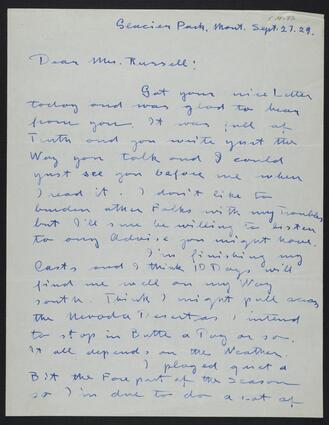 Glacier Park, Mont. Sept. 27. 29.
Dear Mrs. Russell!
Got your nice Letter
today and was glad to hear
from you. It was full of
Truth and you write yust the
Way you talk and I could
yust see you before me when
I read it. I don't like to
burden other Folks with my Troubles
but I'll sure be willing to listen
to any Advise you might have.
I'm finishing my
Casts and I think 10 Days will
find me well on my Way
south. Think I might pull across
the Nevada Desert as I intend
to stop in Butte a Day or so.
It all depends on the Weather.
I played quet a
Bit the Fore part of the Season
so I'm due to do a Lot of